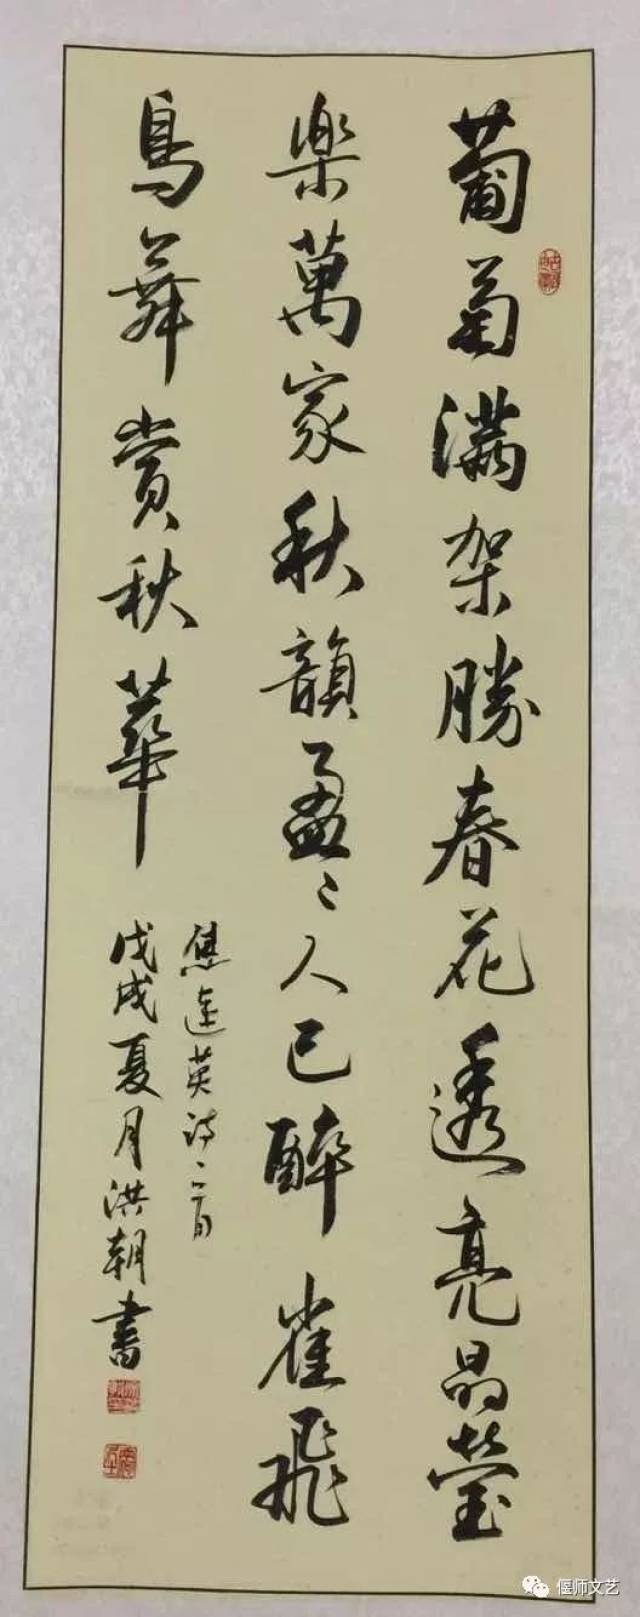 葡萄满架勝春花透亮晶莹
樂萬家秋韻盈〻人已醉雀飛
鳥舞賞秋華
焦遠英詩一首
戊戌夏月洪朝書
偃师文艺